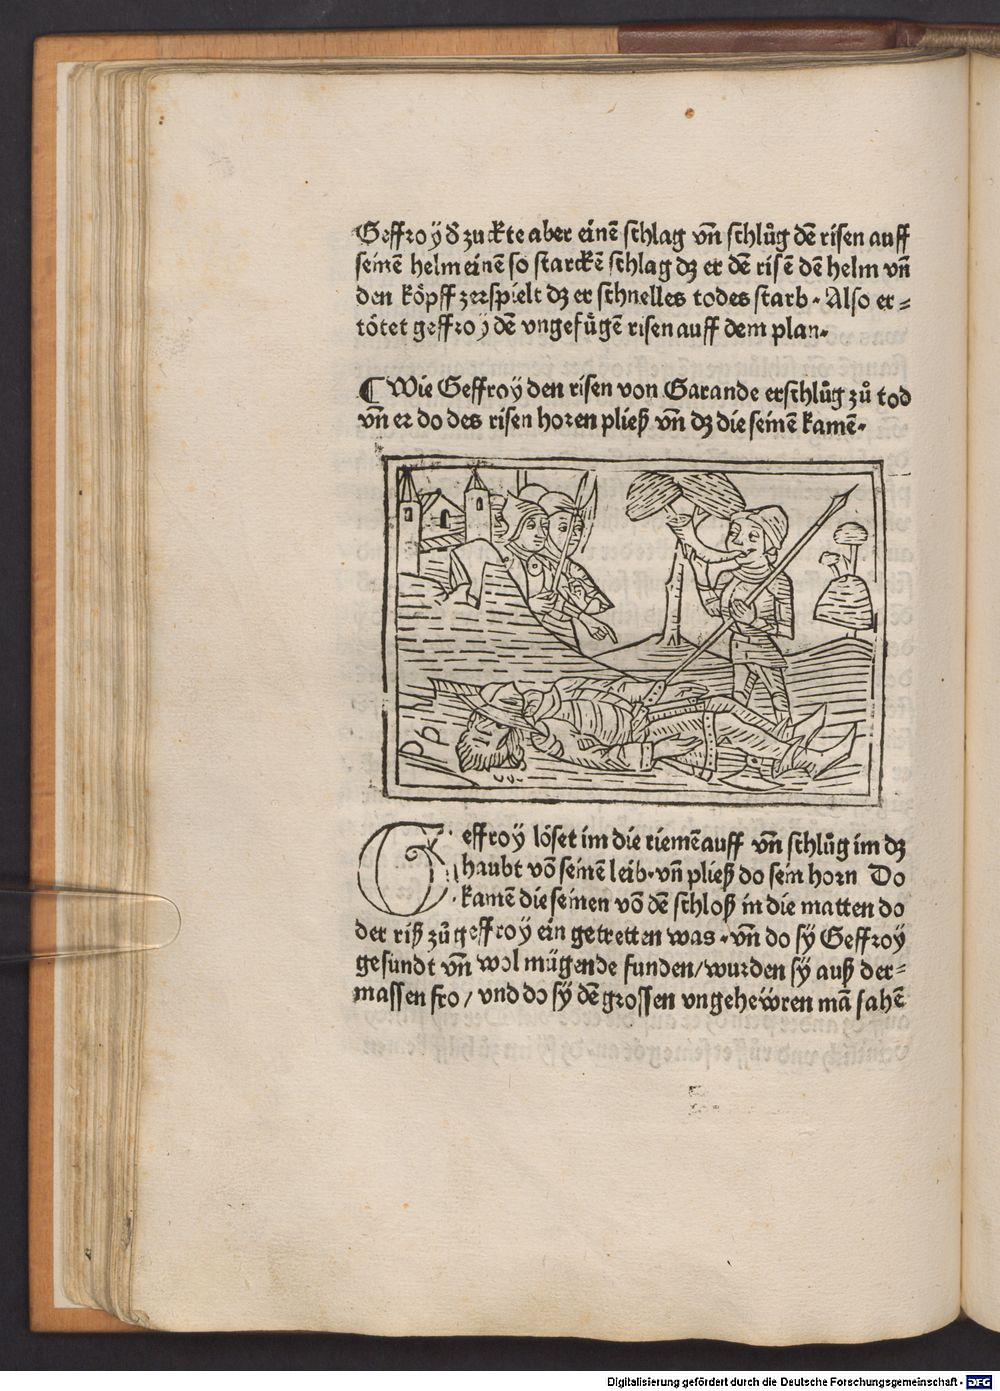 Geffroy d̕ zuckte aber einē schlag vn̄ schlůg dē risen auff
seinē helm einen so starckē schlag dz er dē risē dē helm vn̄
den kôpff zerspielt dz er schnelles todes starb · Also er⸗
tôtet geffroy dē vngefůgē risen auff dem plan·
¶ Wie Geffroy den risen von Garande erschlůg zů tod
vn̄ er do des risen horen pließ vn̄ dz die seinē kamē·
Geffroÿ lôset im die riemē auff vn̄ schlůg im dz
haubt vō seinē leib·vn̄ pließ do sein horn Do
kamē die seinen vō dē schloß in die matten do
der riß zů geffroy ein getretten was · vn̄ do sÿ Geffroÿ
gesundt vn̄ wol mügende funden/wurden sÿ auß der⸗
massen fro / vnd do sÿ dē grossen vngeheẅren mā sahē
Digitalisierung gefördert durch die Deutsche Forschungsgemeinschaft - DFG